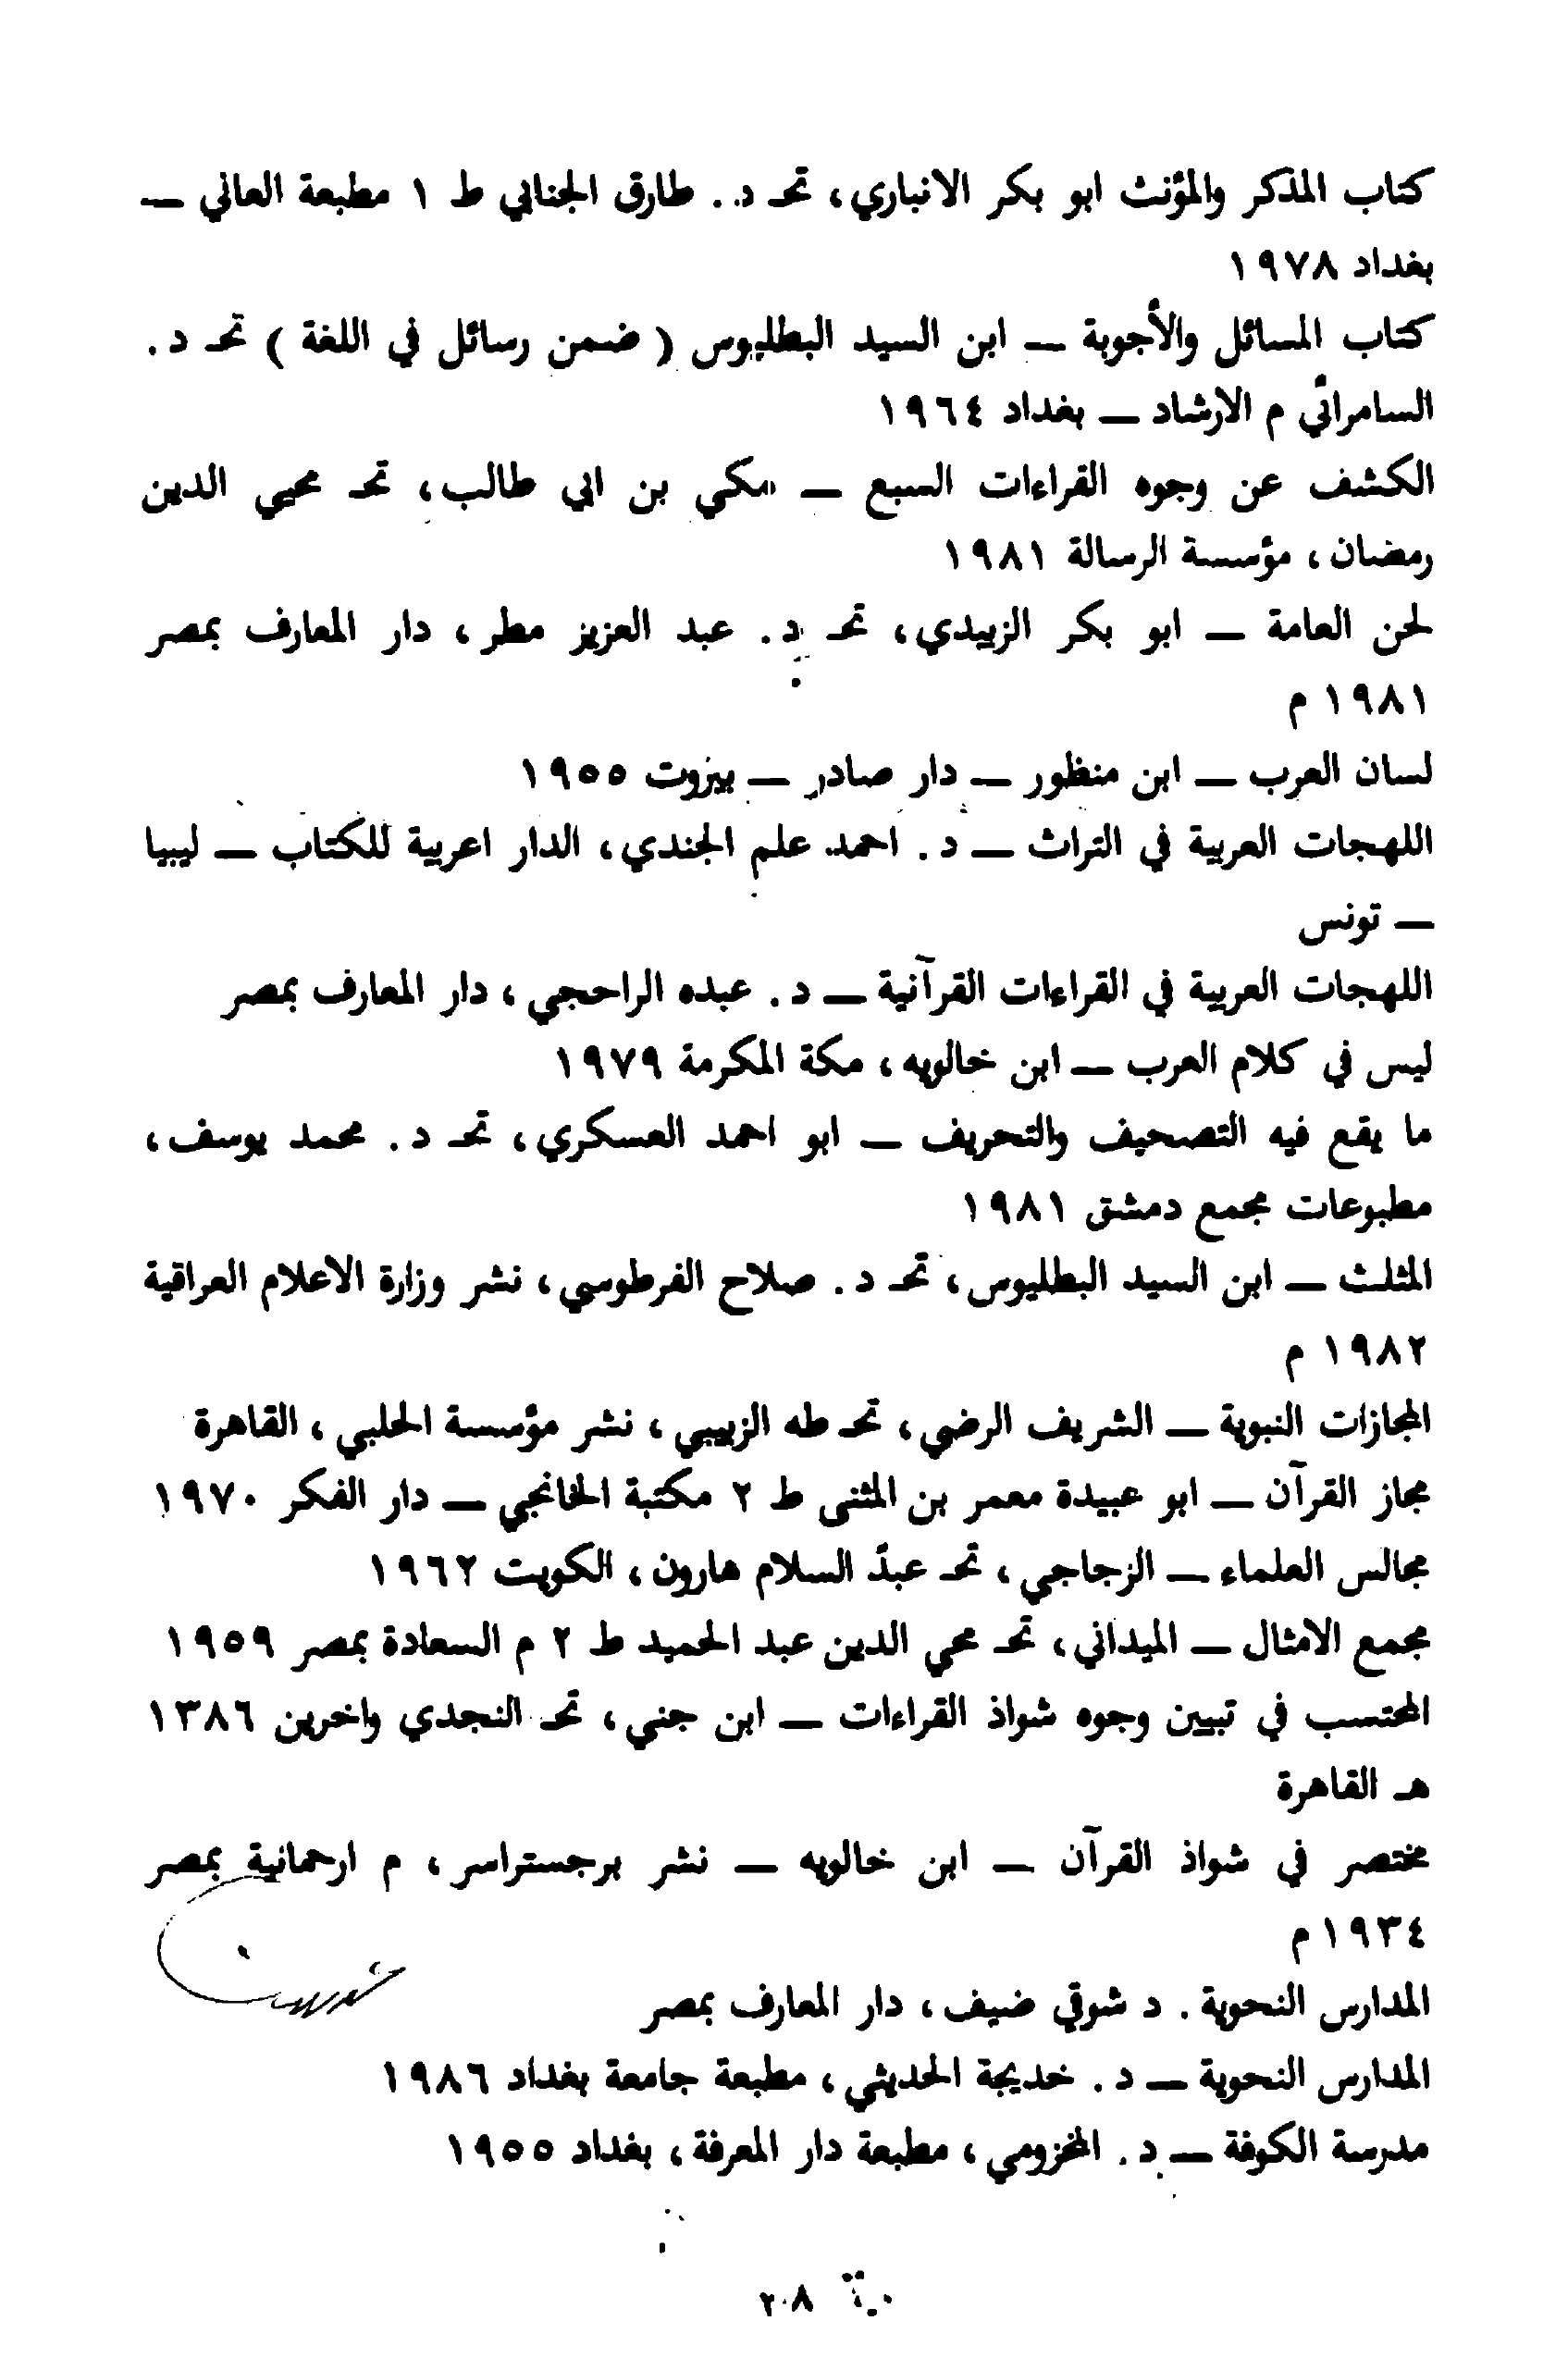 كتاب المذكر والمؤنث ابو بكر الانباري، تحـ د. طارق الجنابي ط ١ مطبعة العاني —
بغداد ١٩٧٨
كتاب المسائل والأجوبة — ابن السيد البطليوس ( ضمن رسائل في اللغة ) تحـ د.
السامرائي م الارشاد — بغداد ١٩٦٤
الكشف عن وجوه القراءات السبع — مكي بن ابي طالب، تحـ محيي الدين
رمضان، مؤسسة الرسالة ١٩٨١
لحن العامة — ابو بكر الزبيدي، تحـ د. عبد العزيز مطر، دار المعارف بمصر
١٩٨١ م
لسان العرب — ابن منظور — دار صادر — بيروت ١٩٥٥
اللهجات العربية في التراث — د. احمد علم الجندي، الدار اعربية للكتاب — ليبيا
— تونس
اللهجات العربية في القراءات القرآنية — د. عبده الراحجي، دار المعارف بمصر
ليس في كلام العرب — ابن خالويه، مكة المكرمة ١٩٧٩
ما يقع فيه التصحيف والتحريف — ابو احمد العسكري، تحـ د. محمد يوسف،
مطبوعات مجمع دمشق ١٩٨١
المثلث — ابن السيد البطليوس، تحـ د. صلاح الفرطوسي، نشر وزارة الاعلام العراقية
١٩٨٢ م
المجازات النبوية — الشريف الرضي، تحـ طه الزييبي، نشر مؤسسة الحلبي، القاهرة
مجاز القرآن — ابو عبيدة معمر بن المثنى ط ٢ مكتبة الخانجي — دار الفكر ١٩٧٠
مجالس العلماء — الزجاجي، تحـ عبد السلام هارون، الكويت ١٩٦٢
مجمع الامثال — الميداني، تحـ محي الدين عبد الحميد ط ٢ م السعادة بمصر ١٩٥٩
المحتسب في تبيين وجوه شواذ القراءات — ابن جني، تحـ النجدي واخرين ١٣٨٦
هـ القاهرة
مختصر في شواذ القرآن — ابن خالويه — نشر برجستراسر، م ارحمانية بمصر
١٩٣٤ م
المدارس النحوية . د شوقي ضيف، دار المعارف بمصر
المدارس النحوية — د. خديجة الحديثي، مطبعة جامعة بغداد ١٩٨٦
مدرسة الكوفة — د. المخزومي، مطبعة دار المعرفة، بغداد ١٩٥٥
٢٠٨